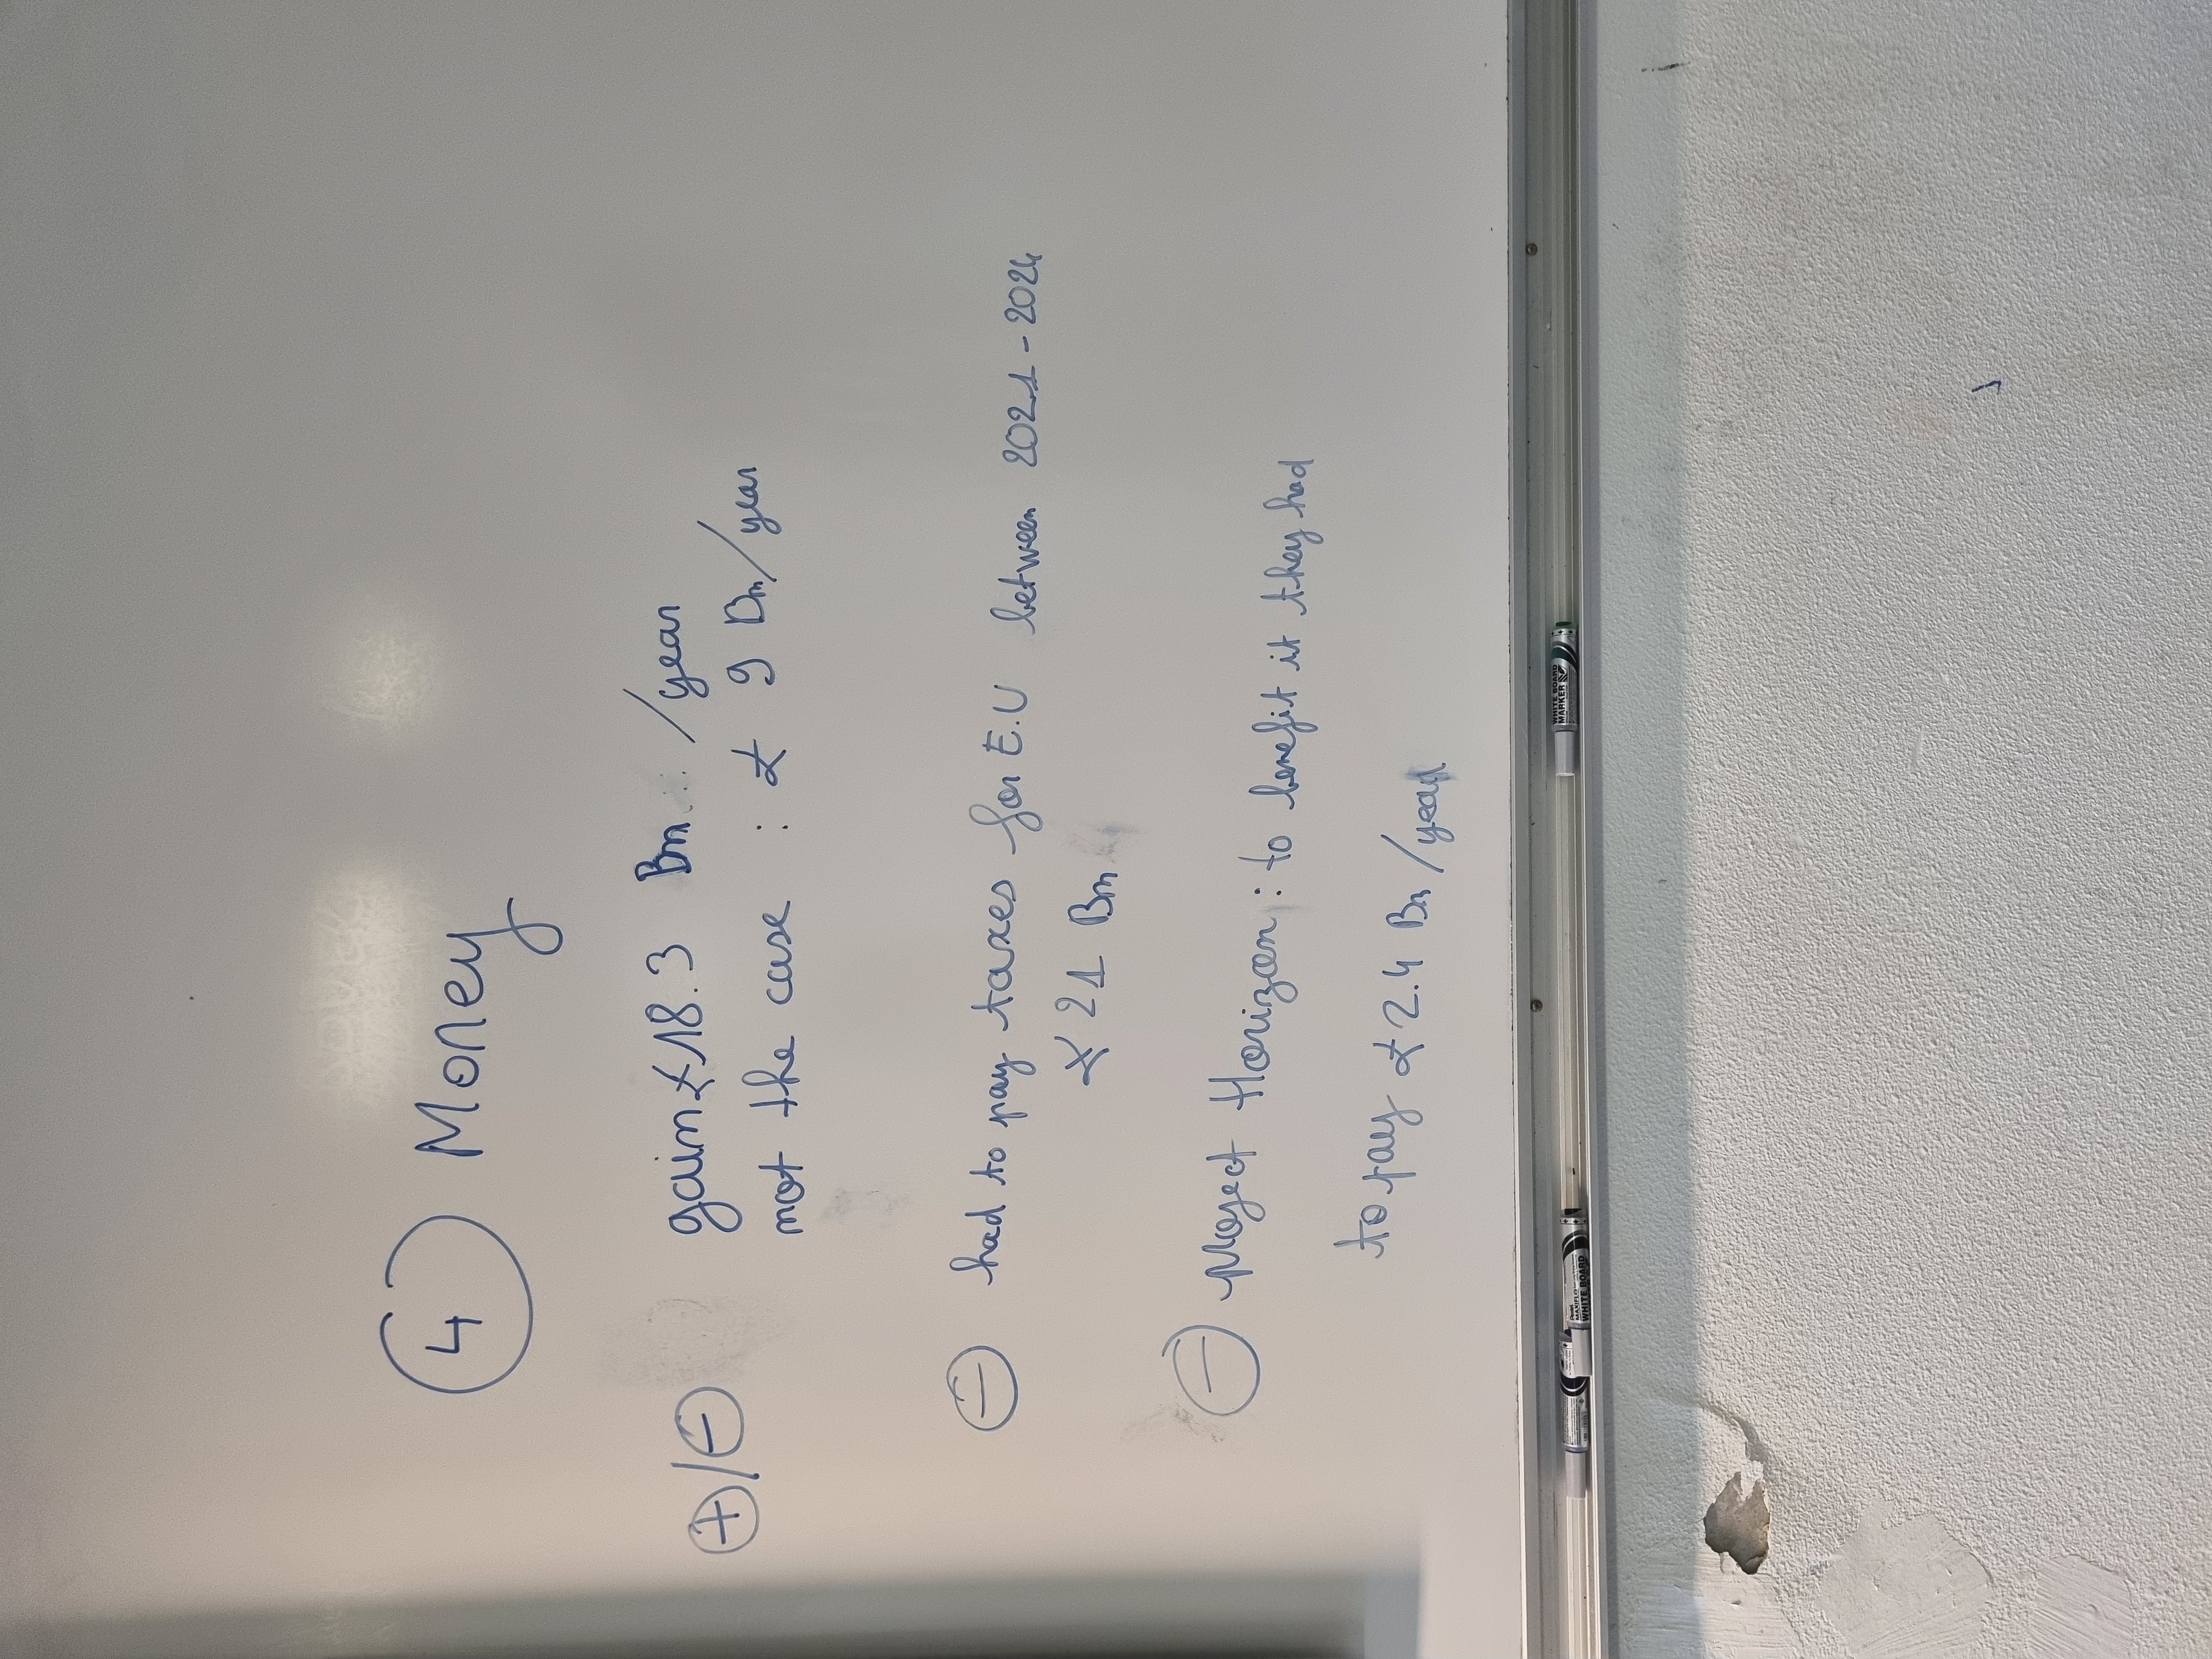 4 Money
+/- gain £18.3 Bn /year
not the case : £ 9 Bn/year
- had to pay taxes for E.U between 2021-2024
£ 21 Bn
- Project Horizon : to benefit it they had
to pay £ 2.4 Bn/year
WHITE BOARD
MARKER
MAXIFLO
WHITE BOARD